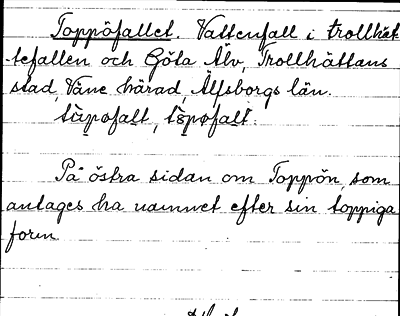 Toppöfallet. Vattenfall i trollhät
tefallen och Göta Älv, Trollhättans
stad, Väne härad, Älfsborgs län.
På östra sidan om Toppön, som
antages ha namnet efter sin toppiga
form